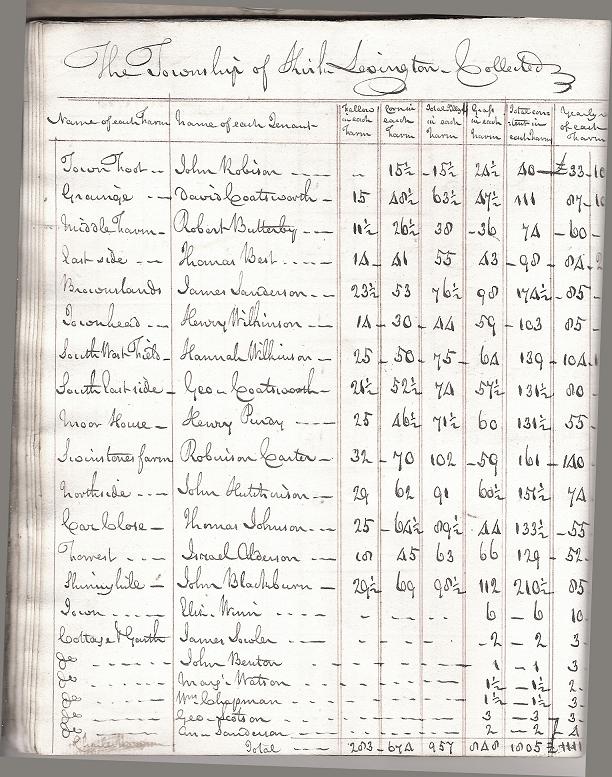 The Township of Kirk Levington - Collected
Name of each Farm Name of each Tenant Fallow in each Farm Corn in each Farm Total Tillage in each Farm Grass in each Farm Total cons tent in each Farm Yearly of each Farm
Town Foot - John Robison - - - - 15½ - 15½ 24½ 40 - £33 - 10
Grainge - - David Coatsworth - 15 48½ 63½ 47½ 111 87 - 10
Middle Farm - Robert Butterby - - 11½ 26½ 38 - 36 74 - 60 -
East side - - Thomas Best - - - - 14 - 41 55 43 - 98 - 84 - 2
Brownlands James Sanderson - - 23½ 53 76½ 98 174½ - 85 -
Townhead - - Henry Wilkinson - - 14 - 30 - 44 59 - 103 85 -
South West Field - Hannah Wilkinson - 25 - 50 - 75 - 64 139 - 104
South East side - Geo - Coatsworth - 21½ 52½ 74 57½ 131½ 80 -
Moor House - Henry - - - 25 46½ 71½ 60 131½ - 55 -
farm Robinson Carter - 32 - 70 102 - 59 161 - 140
Northside - - - John Hutchinson - 29 62 91 60½ 151½ 74
Car Close - Thomas Johnson - - 25 - 64½ 89½ 44 133½ - 55
Forrest - - - Israel Alderson - - 18 45 63 66 129 - 52 -
Shinnyhille - John Blackburn - 29½ 69 98½ 112 210½ - 85
Town - - - - - Eliz - Winn - - - - - - - - - 6 - 6 10
Cottage & Garth James - - - - - - - - 2 - 2 3
Do - - - - - John Benton - - - - - - - 1 - 1 3
Do - - - - - Margt Watson - - - - - - - 1½ - 1½ 2 -
Do - - - - - Wm Chapman - - - - - - - 1½ - 1½ 3 -
Do - - - - - Geo - - - - - - - - 3 - 3 3 -
Do - - - - - Ann Sanderson - - - - - - 2 - 2 4
Total - - - - 283 - 674 957 848 1805 £1111